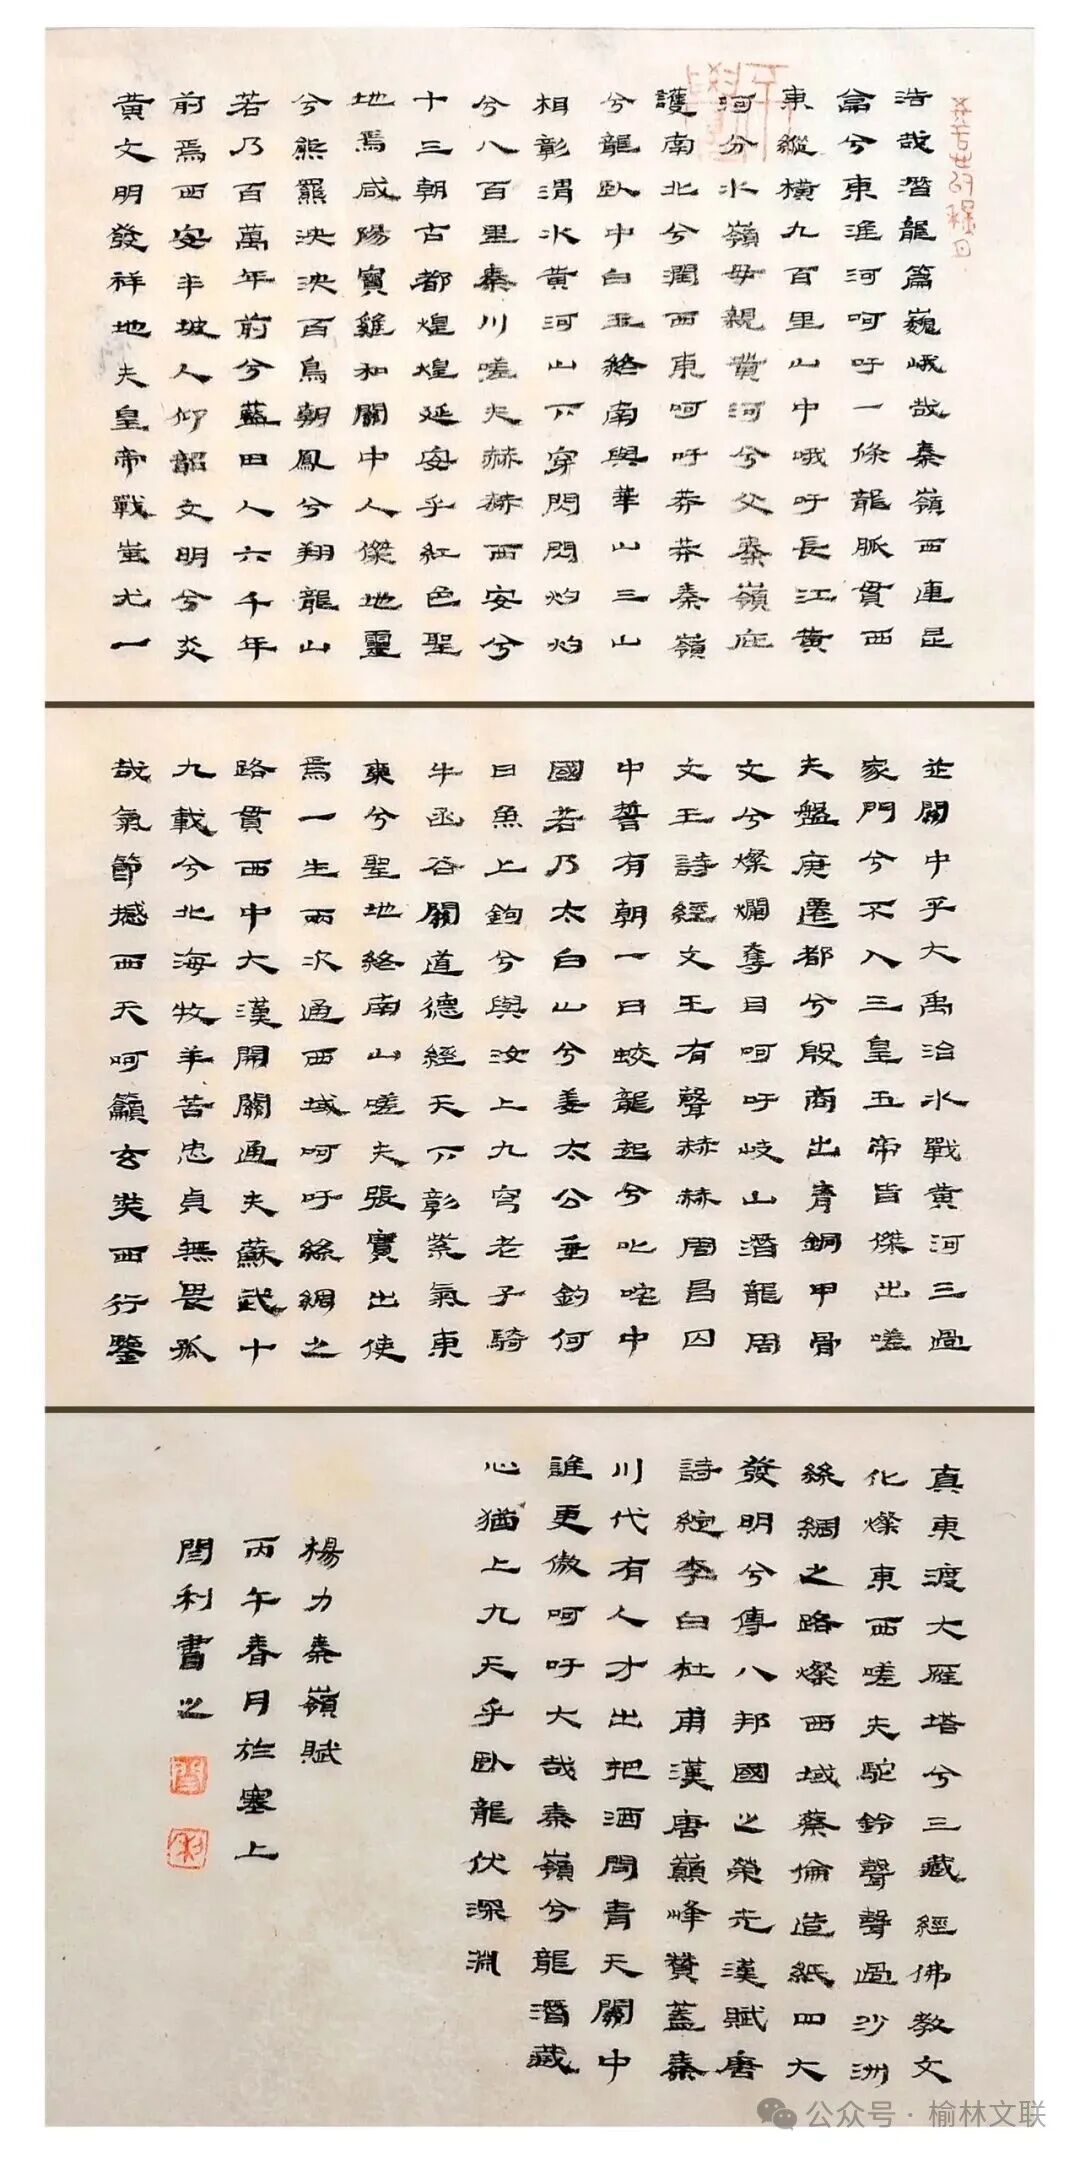 浩哉潛龍篇巍峨哉秦嶺西連昆
侖兮東淮河呵吁一條龍脈貫西
東縱橫九百里山中哦吁長江黃
河分水嶺母親黃河兮父秦嶺庇
護南北兮潤西東呵吁莽莽秦嶺
兮龍臥中白玉終南與華山三山
相彰渭水黃河山下穿閃閃灼灼
兮八百里秦川嗟夫赫赫西安兮
十三朝古都煌煌延安乎紅色聖
地焉咸陽寶雞和關中人傑地靈
兮熊羆泱泱百鳥朝鳳兮翔龍山
若乃百萬年前兮藍田人六千年
前焉西安半坡人仰韶文明兮炎
黃文明發祥地夫皇帝戰蚩尤一
並關中乎大禹治水戰黃河三過
家門兮不入三皇五帝皆傑出嗟
夫盤庚遷都兮殷商出青銅甲骨
文兮燦爛奪目呵吁岐山潛龍周
文王詩經文王有聲赫赫周昌囚
中誓有朝一日蛟龍起兮叱咤中
國若乃太白山兮姜太公垂釣何
曰魚上鉤兮與汝上九穹老子騎
牛函谷關道德經天下彰紫氣東
來兮聖地終南山嗟夫張騫出使
焉一生兩次通西域呵吁絲綢之
路貫西中大漢開關通夫蘇武十
九載兮北海牧羊苦忠貞無畏孤
哉氣節撼西天呵籲玄奘西行鑒
真東渡大雁塔兮三藏經佛教文
化燦東西嗟夫駝鈴聲聲過沙洲
絲綢之路燦西域蔡倫造紙四大
發明兮傳八邦國之榮光漢賦唐
詩綻李白杜甫漢唐巔峰贊蓋秦
川代有人才出把酒問青天關中
誰更傲呵吁大哉秦嶺兮龍潛藏
心猶上九天乎臥龍伏深淵
楊力秦嶺賦
丙午春月於塞上
閆利書之
公众号·榆林文联